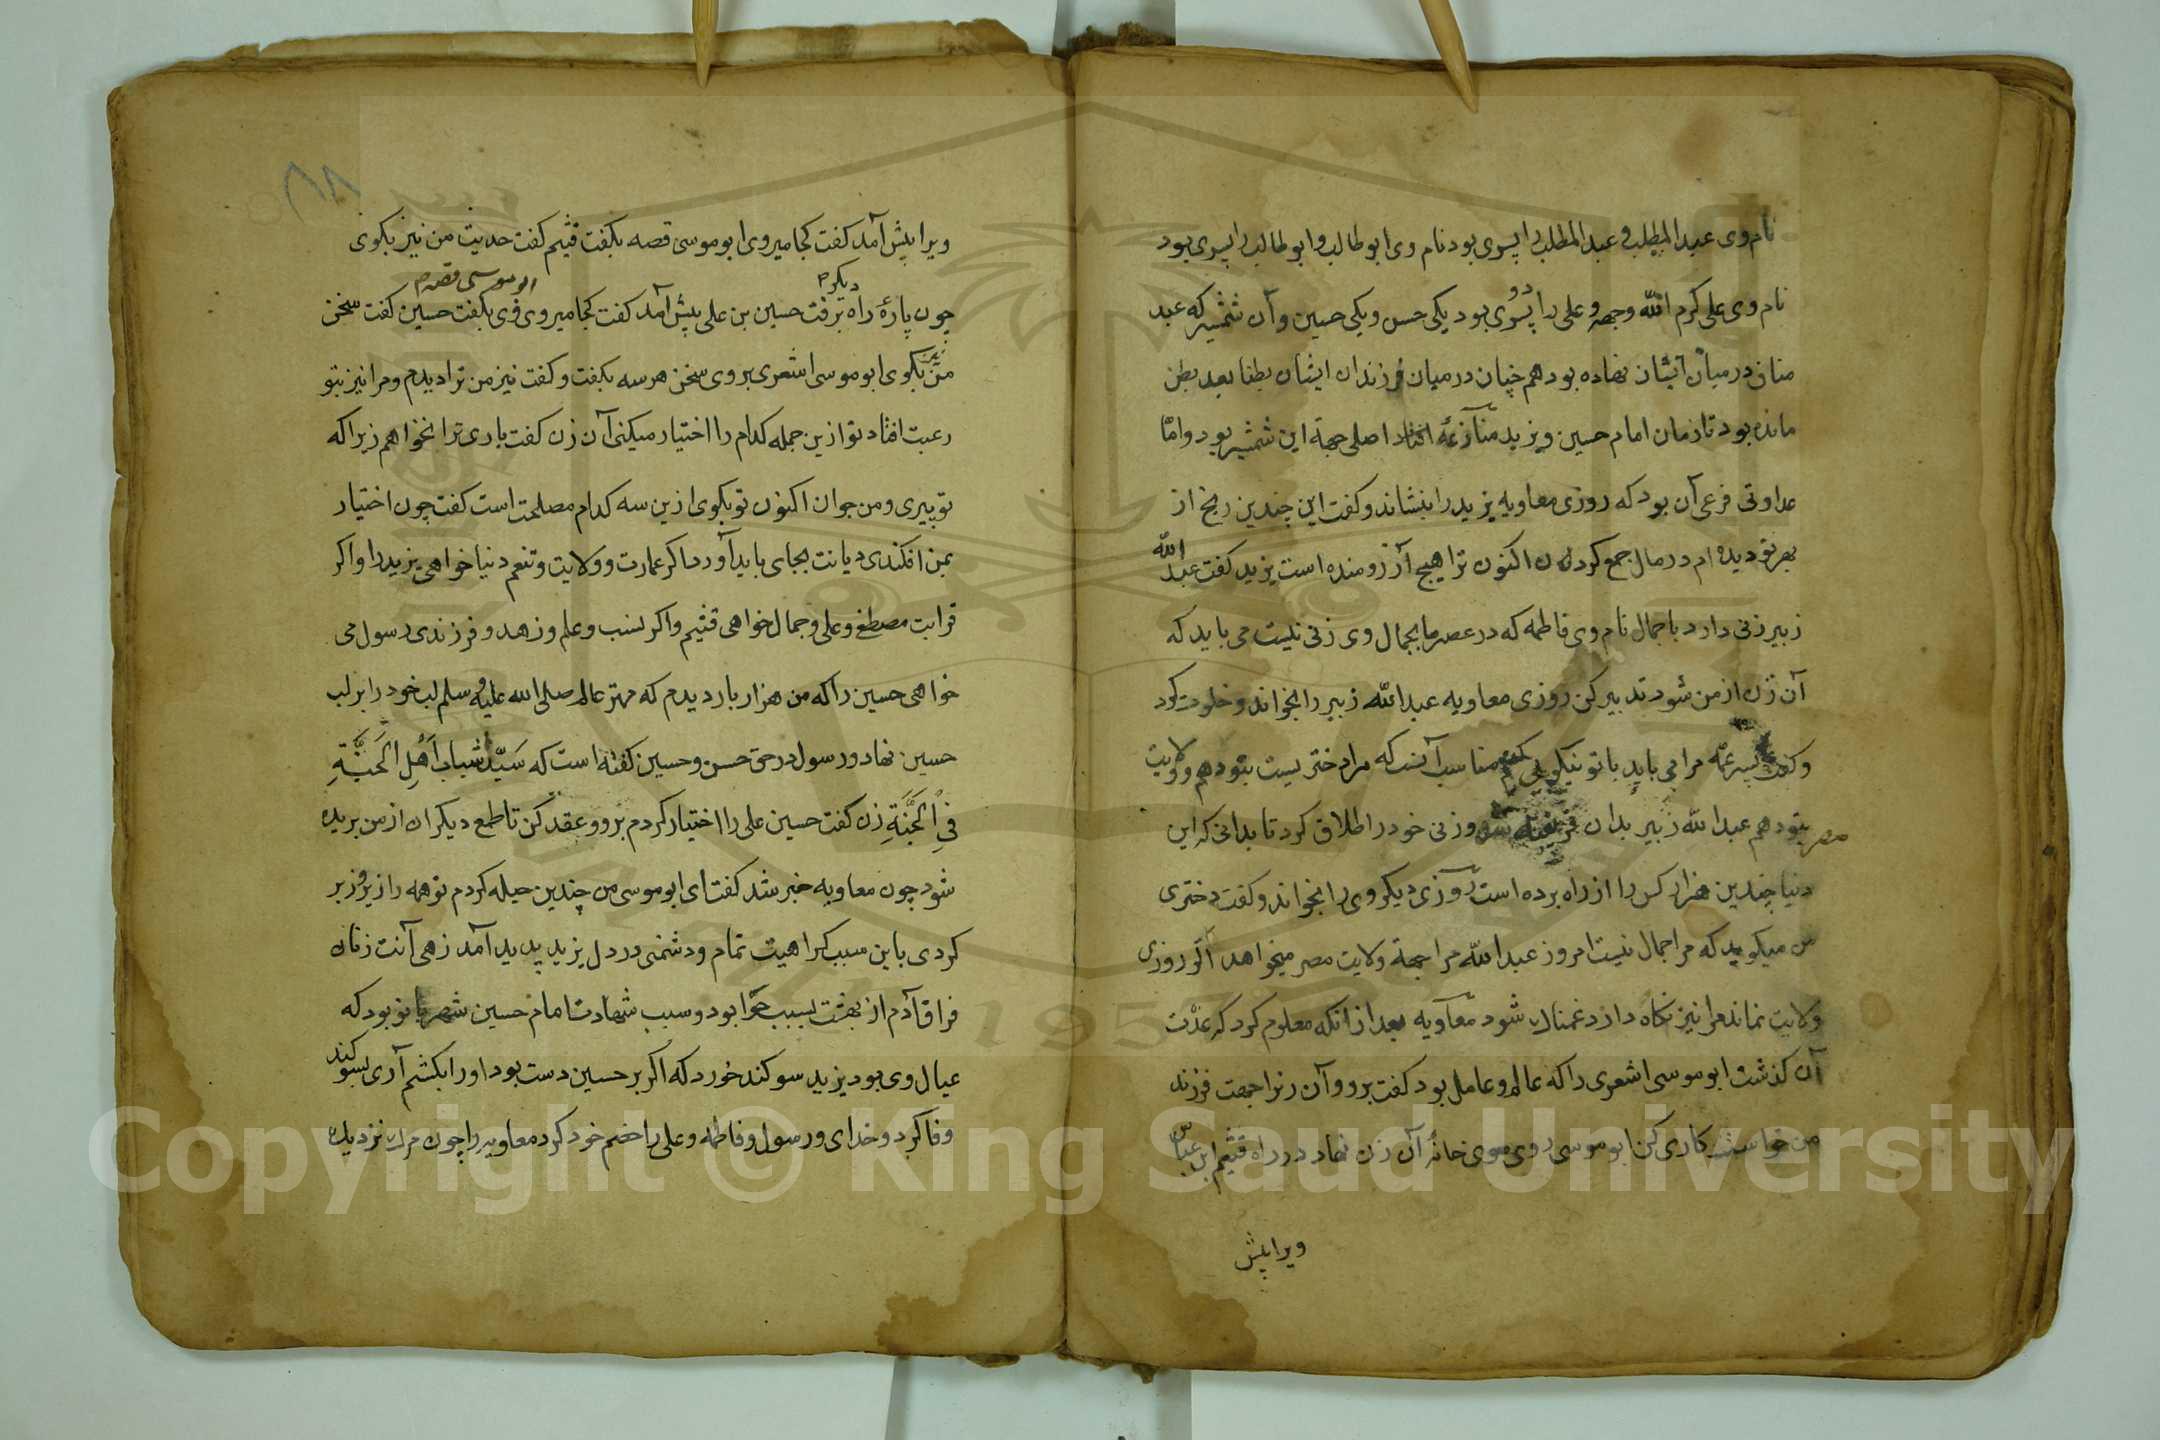 نام وی عبد المطلب و عبد المطلب را پسری بود نام وی ابو طالب و ابو طالب را پسری بود
نام وی علی کرم الله وجهه و علی را دو پسری بود یکی حسن و یکی حسین و آن شمشیر که عبد
مناف در میان ایشان نهاده بود هم چنان در میان فرزندان ایشان بطنا بعد بطن
مانده بود تا زمان امام حسین و یزید منازعهٔ افتاد اصلی جهة این شمشیر بود و اما
عداوتی فرعی آن بود که روزی معاویه یزید را بنشاند و کفت این چندین رنج از
بهر تو دیده ام در مال جمع کردن اکنون ترا هیچ آرزو منده است یزید کفت عبد الله
زبیر زنی دارد با جمال نام وی فاطمه که در عصر ما بجمال وی زنی نیست می باید که
آن زن از من شود تدبیر کن روزی معاویه عبد الله زبیر را بخواند و خلوت کرد
و کفت پسر عمّه مرا می باید با تو نیکویی کنم مناسب آنست که مرا دختریست بتو دهم و ولایت
مصر بتو دهم عبد الله زبیر بدان فریفته شد و زنی خود را طلاق کرد تا بدانی که این
دنیا چندین هزار کس را از راه برده است روزی دیکر وی را بخواند و کفت دختری
من میکوید که مرا جمال نیست امروز عبد الله مرا جهة ولایت مصر میخواهد اکر روزی
ولایت نماند مرا نیز نکاه دارد غمناک شود معاویه بعد از انکه معلوم کرد که عدّت
آن کذشت ابو موسی اشعری را که عالم و عامل بود کفت برو و آن زنرا جهت فرزند
من خواست کاری کن ابو موسی روی سوی خانهٔ آن زن نهاد در راه قثیم ابن عباس
ویرا پیش
ویرا پیش آمد کفت کجا میروی ابو موسی قصه بکفت قثیم کفت حدیث من نیز بکوی
دیکر م ابو موسی قصه م
چون پارهٔ راه برفت حسین بن علی پیش آمد کفت کجا میروی وی بکفت حسین کفت سخن
من نیز بکوی ابو موسی اشعری بر وی سخن هر سه بکفت و کفت نیز من ترا دیدم و مرا نیز بتو
رغبت افتاد تو ازین جمله کدام را اختیار میکنی آن زن کفت باری ترا نخواهم زیرا که
تو پیری و من جوان اکنون تو بکوی ازین سه کدام مصلحت است کفت چون اختیار
بمن افکندی دیانت بجای باید آورد اکر عمارت و ولایت و تنعم دنیا خواهی یزید را و اکر
قرابت مصطفی و علی و جمال خواهی قثیم و اکر نسب و علم و زهد و فرزندی رسول می
خواهی حسین را که من هزار بار دیدم که مهتر عالم صلی الله علیه و سلم لب خود را بر لب
حسین نهاد و رسول در حق حسن و حسین کفته است که سَیّدا شباب اَهْلِ الْجَنَّةِ
فِی الْجَنَّةِ زن کفت حسین علی را اختیار کردم برو و عقد کن تا طمع دیکران از من بریده
شود چون معاویه خبر شد کفت ای ابو موسی من چندین حیله کردم تو همه را زیر و زبر
کردی باین سبب کراهیت تمام و دشمنی در دل یزید پدید آمد زهی آفت زنان
فراق آدم از بهشت بسبب حوّا بود و سبب شهادت امام حسین شهربانو بود که
عیال وی بود یزید سوکند خورد که اکر بر حسین دست بود او را بکشم آری بسوکند
وفا کرد و خدای و رسول و فاطمه و علی را خصم خود کرد معاویه را چون مرک نزدیک